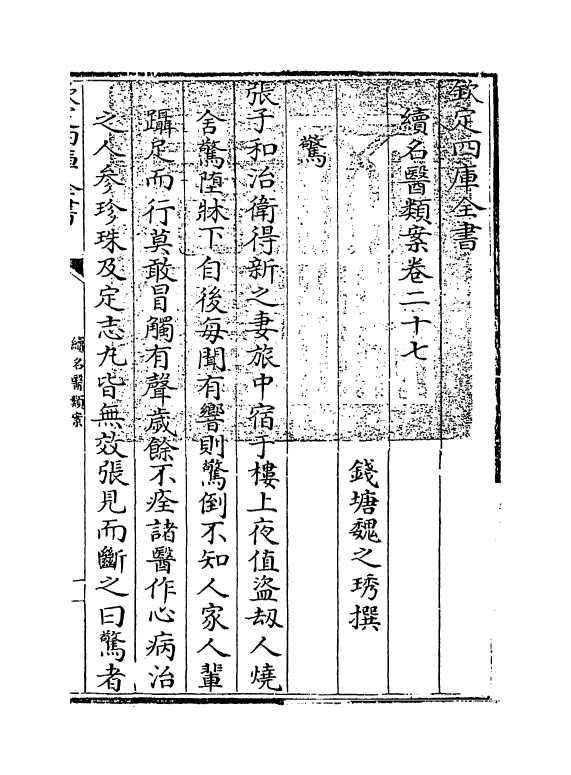 欽定四庫全書
續名醫類案卷二十七
錢塘魏之琇撰
驚
張子和治衛得新之妻旅中宿于樓上夜值盜刼人燒
舍驚墮牀下自後每聞有響則驚倒不知人家人輩
躡足而行莫敢冒觸有聲歲餘不痊諸醫作心病治
之人參珍珠及定志丸皆無效張見而斷之曰驚者
欽定四庫全書
續名醫類案
一